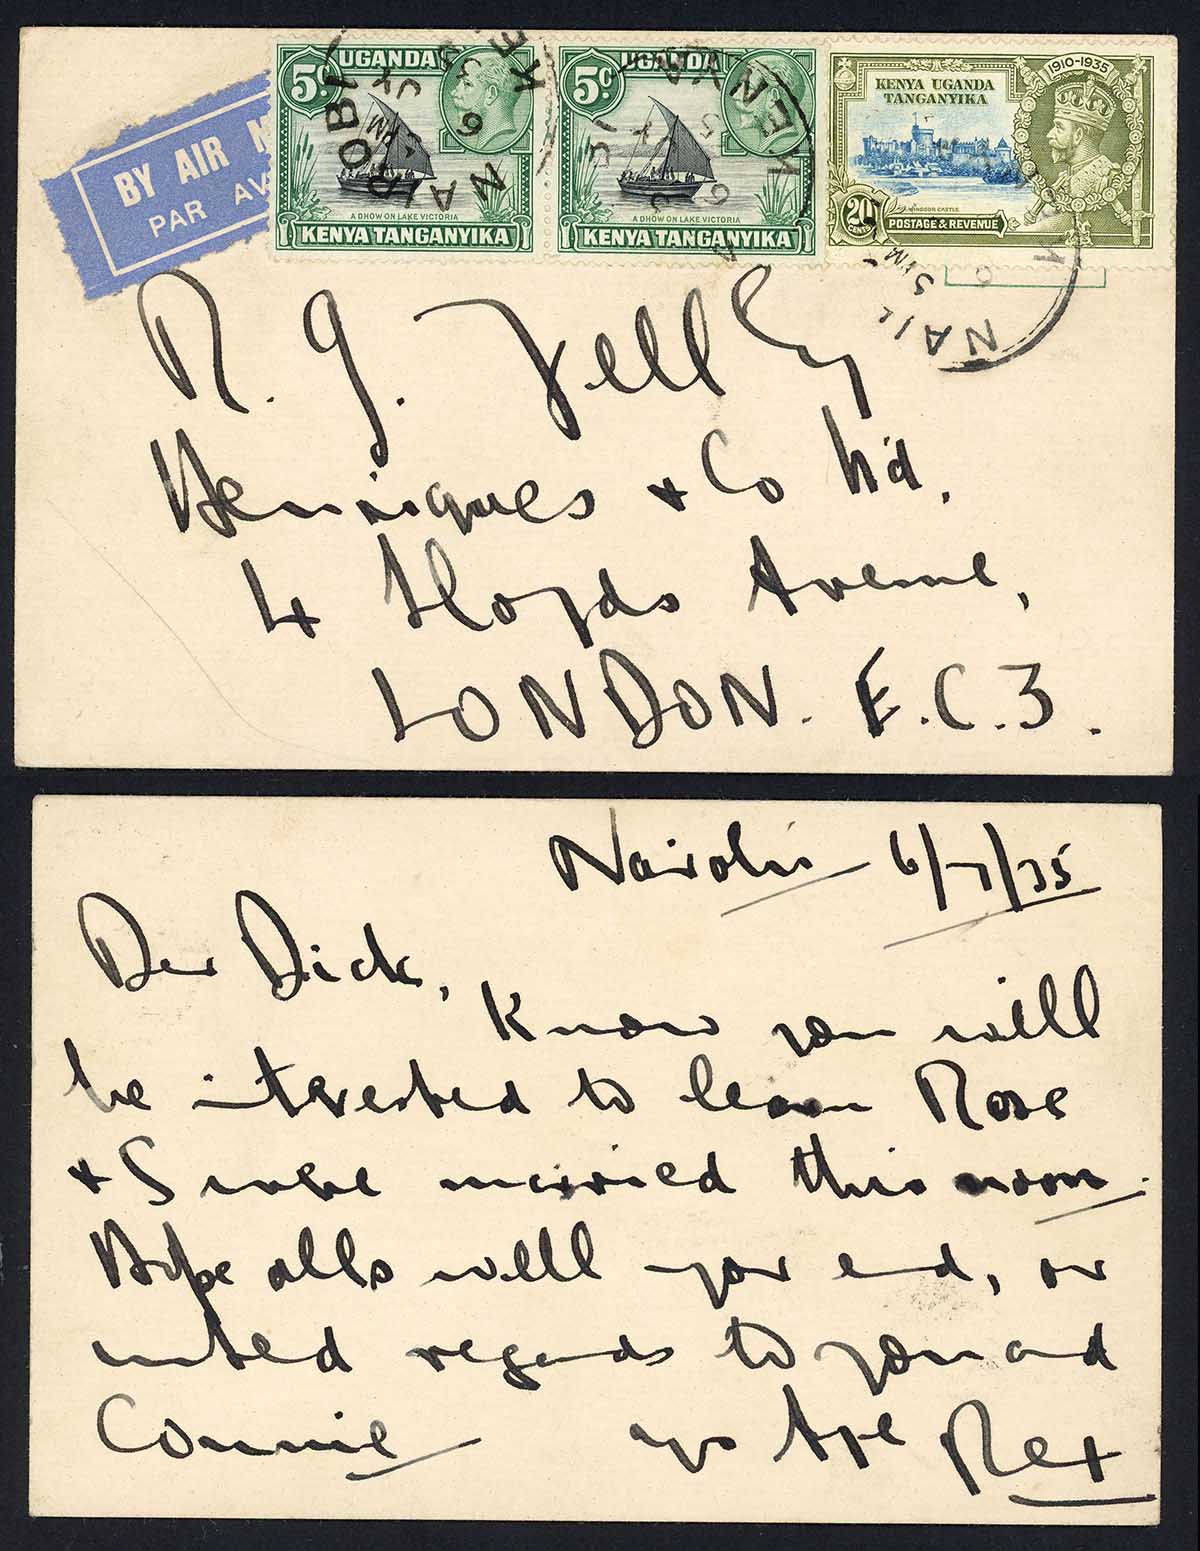 BY AIR M
PAR AV
5c. UGANDA
A DHOW ON LAKE VICTORIA
KENYA TANGANYIKA
5c. UGANDA
A DHOW ON LAKE VICTORIA
KENYA TANGANYIKA
1910-1935
KENYA UGANDA
TANGANYIKA
WINDSOR CASTLE
20
CENTS
POSTAGE & REVENUE
NAIROBI
KENYA
R. G. Jelley
Henriques & Co Ltd.
4 Lloyds Avenue,
LONDON. E.C.3.
Nairobi 6/7/35
Dear Dick,
Know you will
be interested to learn Rose
& I were married this noon.
Hope all's well your end, our
united regards to you and
Connie
Rex